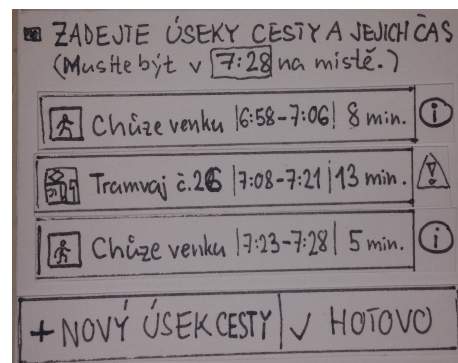 ZADEJTE ÚSEKY CESTY A JEJICH ČAS
(Musíte být v 7:28 na místě.)
Chůze venku |6:58-7:06| 8 min. i
Tramvaj č.26 |7:08-7:21| 13 min. !
Chůze venku |7:23-7:28| 5 min. i
+ NOVÝ ÚSEK CESTY | √ HOTOVO